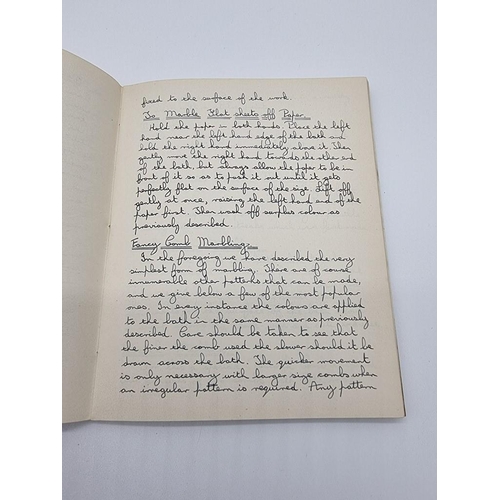 fixed to the surface of the work.
To Marble Flat sheets off Paper.
Hold the paper in both hands. Place the left
hand near the left hand edge of the bath and
hold the right hand immediately above it. Then
gently move the right hand towards the other end
of the bath, but always allow the paper to be in
front of it so as to push it out until it gets
perfectly flat on the surface of the size. Lift off
gently at once, raising the left hand end of the
paper first. Then wash off surplus colour as
previously described.
Fancy Comb Marbling.
In the foregoing we have described the very
simplest form of marbling. There are of course
innumerable other patterns that can be made,
and we give below a few of the most popular
ones. In every instance the colours are applied
to the bath in the same manner as previously
described. Care should be taken to see that
the finer the comb used the slower should it be
drawn across the bath. The quicker movement
is only necessary with larger size combs when
an irregular pattern is required. Any pattern